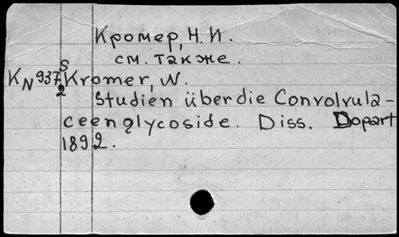 Кромер, Н. И.
см. также.
KN 937 S/2 Kromer, W.
Studien über die Convolvula-
ceenglycoside. Diss. Dopart
1892.